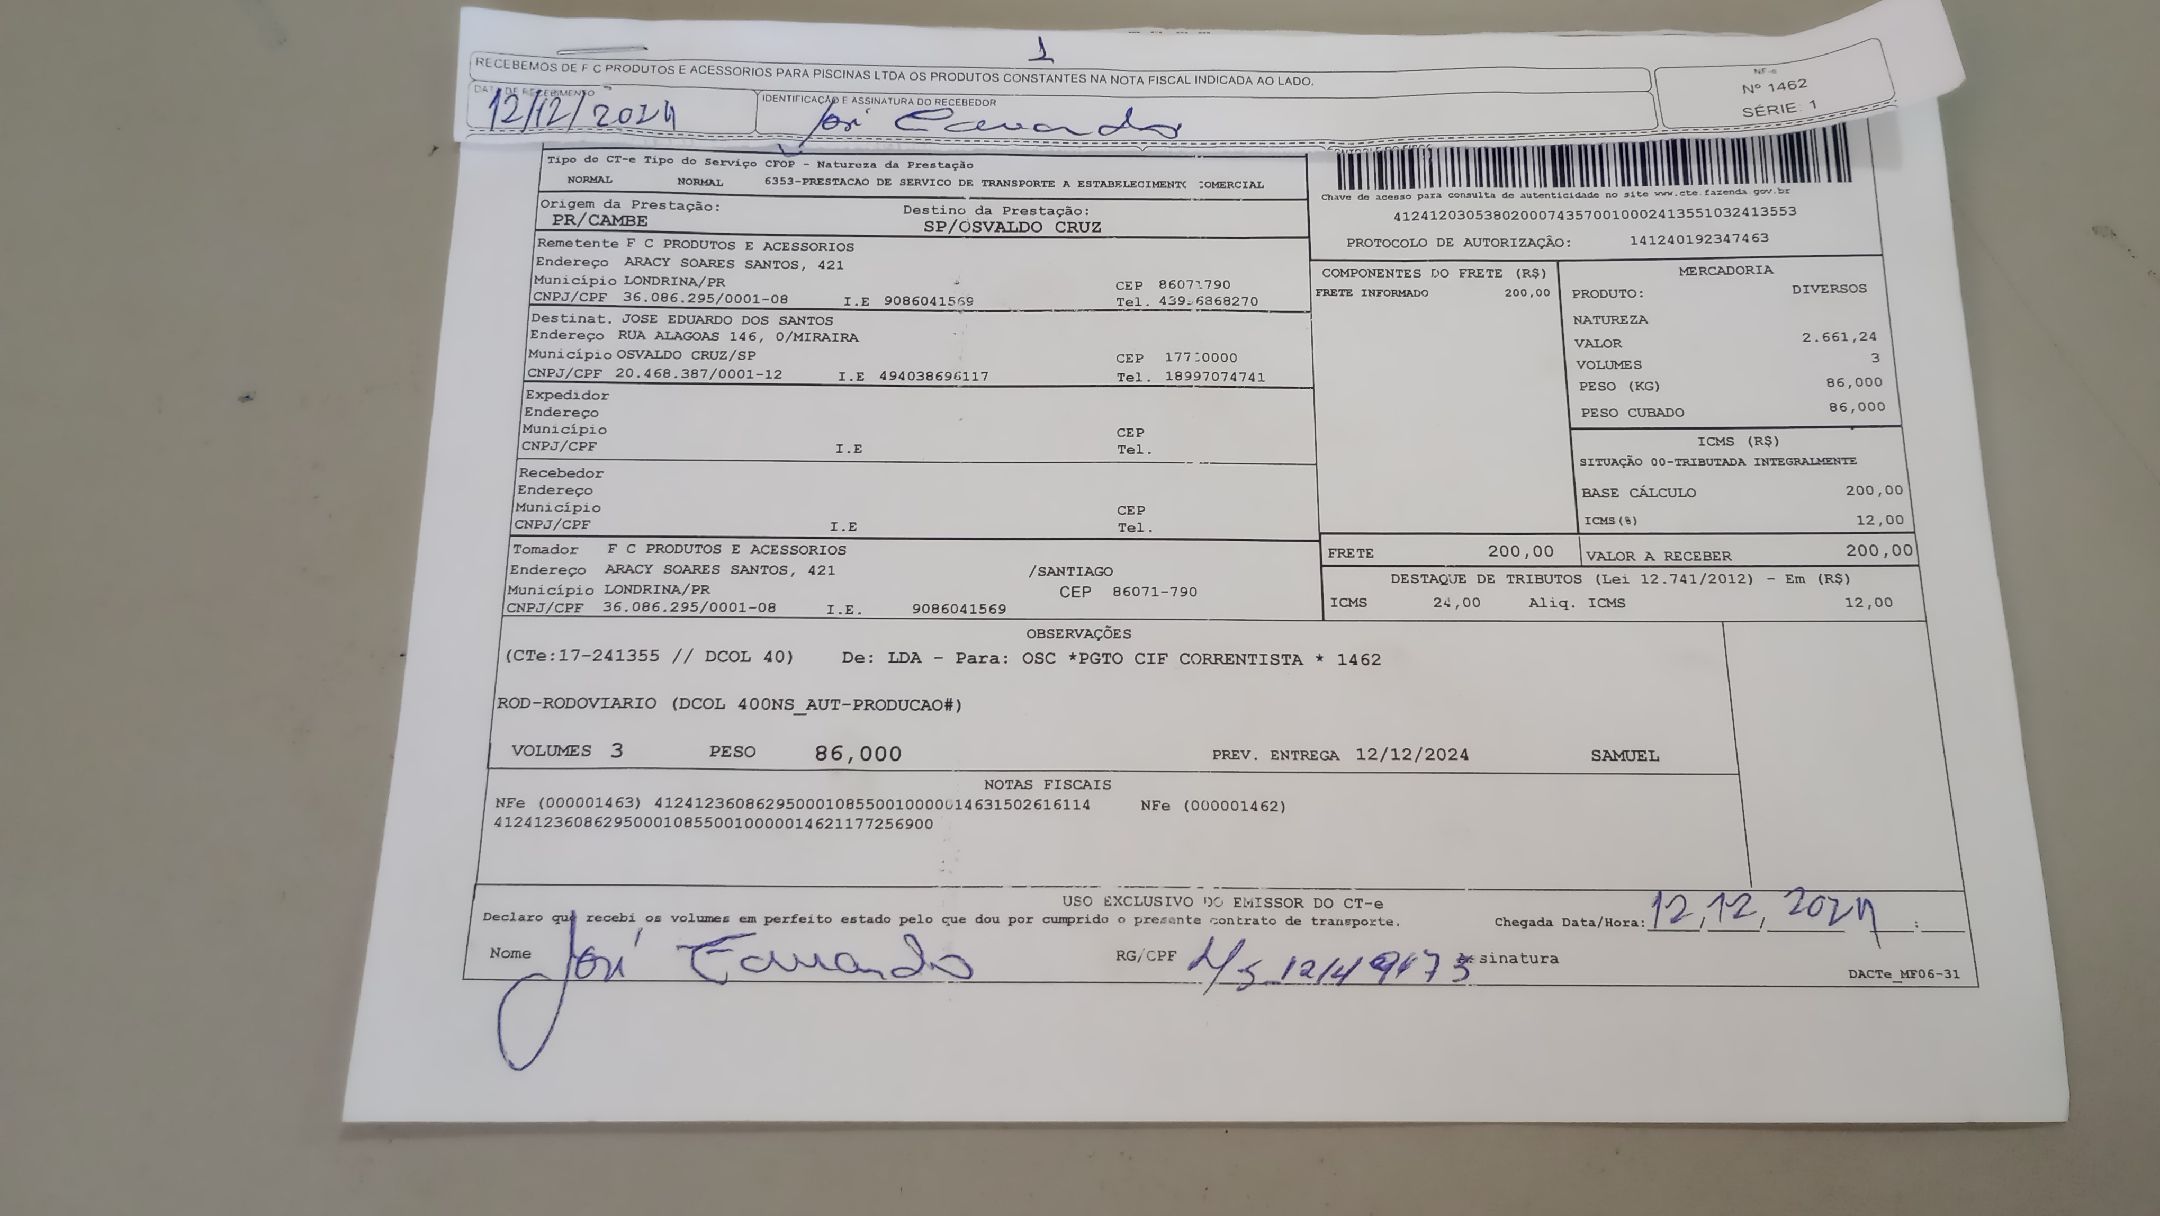 1
RECEBEMOS DE F C PRODUTOS E ACESSORIOS PARA PISCINAS LTDA OS PRODUTOS CONSTANTES NA NOTA FISCAL INDICADA AO LADO.
NF-e
Nº 1462
SÉRIE: 1
DATA DE RECEBIMENTO
12/12/2024
IDENTIFICAÇÃO E ASSINATURA DO RECEBEDOR
José Eduardo
Tipo do CT-e Tipo do Serviço CFOP - Natureza da Prestação
NORMAL NORMAL 6353-PRESTACAO DE SERVICO DE TRANSPORTE A ESTABELECIMENTO COMERCIAL
Origem da Prestação: Destino da Prestação:
PR/CAMBE SP/OSVALDO CRUZ
Chave de acesso para consulta de autenticidade no site www.cte.fazenda gov.br
41241203053802000743570010002413551032413553
PROTOCOLO DE AUTORIZAÇÃO: 141240192347463
Remetente F C PRODUTOS E ACESSORIOS
Endereço ARACY SOARES SANTOS, 421
Município LONDRINA/PR CEP 86071790
CNPJ/CPF 36.086.295/0001-08 I.E 9086041569 Tel.
Destinat. JOSE EDUARDO DOS SANTOS
Endereço RUA ALAGOAS 146, 0/MIRAIRA
Município OSVALDO CRUZ/SP CEP
CNPJ/CPF 20.468.387/0001-12 I.E 494038696117 Tel. 18997074741
Expedidor
Endereço
Município CEP
CNPJ/CPF I.E Tel.
Recebedor
Endereço
Município CEP
CNPJ/CPF I.E Tel.
Tomador F C PRODUTOS E ACESSORIOS
Endereço ARACY SOARES SANTOS, 421 /SANTIAGO
Município LONDRINA/PR CEP 86071-790
CNPJ/CPF 36.086.295/0001-08 I.E. 9086041569
COMPONENTES DO FRETE (R$)
FRETE INFORMADO 200,00
MERCADORIA
PRODUTO: DIVERSOS
NATUREZA
VALOR 2.661,24
VOLUMES 3
PESO (KG) 86,000
PESO CUBADO 86,000
ICMS (R$)
SITUAÇÃO 00-TRIBUTADA INTEGRALMENTE
BASE CÁLCULO 200,00
ICMS(%) 12,00
FRETE 200,00 VALOR A RECEBER 200,00
DESTAQUE DE TRIBUTOS (Lei 12.741/2012) - Em (R$)
ICMS 24,00 Aliq. ICMS 12,00
OBSERVAÇÕES
(CTe:17-241355 // DCOL 40) De: LDA - Para: OSC *PGTO CIF CORRENTISTA * 1462
ROD-RODOVIARIO (DCOL 400NS_AUT-PRODUCAO#)
VOLUMES 3 PESO 86,000 PREV. ENTREGA 12/12/2024 SAMUEL
NOTAS FISCAIS
NFe (000001463) 41241236086295000108550010000014631502616114 NFe (000001462)
41241236086295000108550010000014621177256900
USO EXCLUSIVO DO EMISSOR DO CT-e
Declaro que recebi os volumes em perfeito estado pelo que dou por cumprido o presente contrato de transporte.
Chegada Data/Hora: 12,12,2024 :
Nome José Eduardo RG/CPF sinatura
DACTe_MF06-31